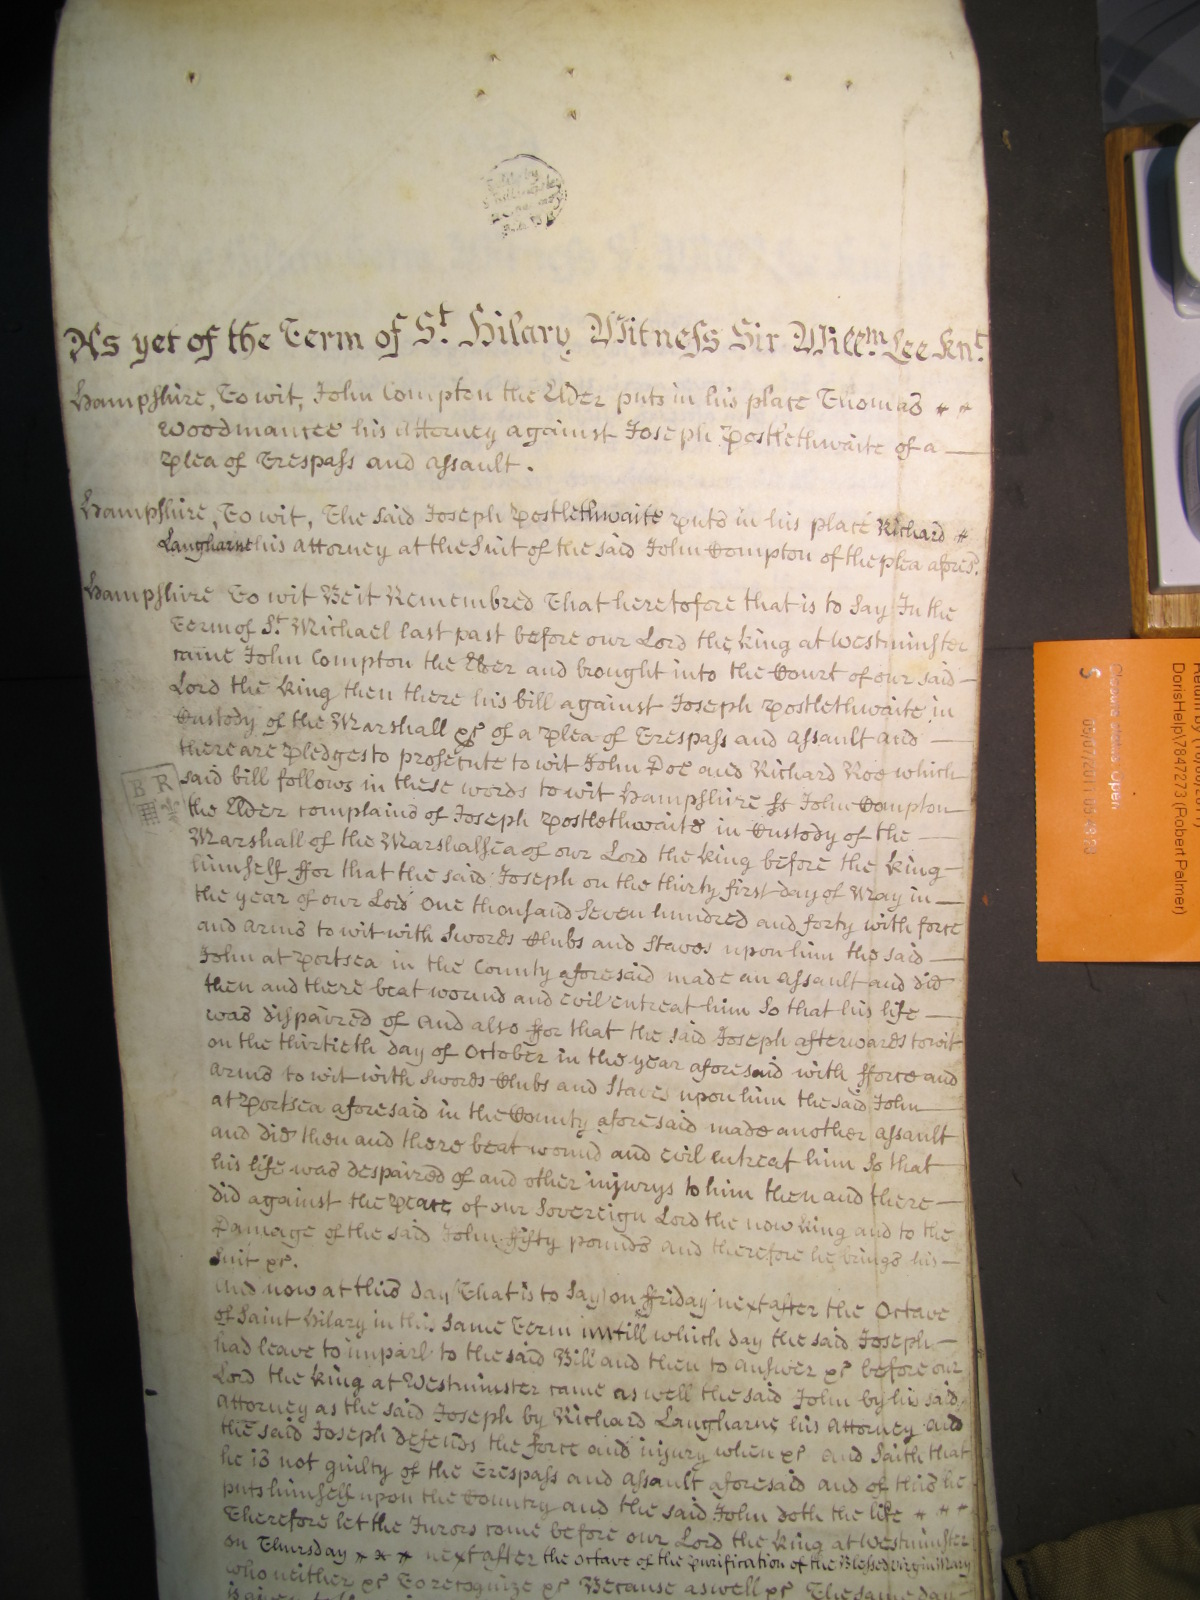 As yet of the Term of St. Hilary Witness Sir Willm. Lee Knt.
Hampshire, To wit, John Compton the Elder puts in his place Thomas
Woodmancee his Attorney against Joseph Postlethwaite of a
Plea of Trespass and assault.
Hampshire, To wit, The said Joseph Postlethwaite puts in his place Richard
Langharne his attorney at the Suit of the said John Compton of the plea afores.d
Hampshire To wit Be it Remembred That heretofore that is to say In the
Term of St. Michael last past before our Lord the King at Westminster
came John Compton the Elder and brought into the Court of our said
Lord the King then there his bill against Joseph Postlethwaite in
Custody of the Marshall &c of a Plea of Trespass and assault and
there are Pledges to prosecute to wit John Doe and Richard Roe which
said bill follows in these words to wit Hampshire ss John Compton
the Elder complains of Joseph Postlethwaite in Custody of the
Marshall of the Marshalsea of our Lord the King before the King
himself ffor that the said Joseph on the thirty first day of May in
the year of our Lord One thousand Seven hundred and forty with force
and arms to wit with Swords Clubs and Staves upon him the said
John at Portsea in the County aforesaid made an assault and did
then and there beat wound and evil entreat him So that his life
was dispaired of And also ffor that the said Joseph afterwards to wit
on the thirtieth day of October in the year aforesaid with fforce and
arms to wit with Swords Clubs and Staves upon him the said John
at Portsea aforesaid in the County aforesaid made another assault
and did then and there beat wound and evil entreat him So that
his life was despaired of and other injurys to him then and there
did against the Peace of our Sovereign Lord the now King and to the
Damage of the said John fifty pounds and therefore he brings his
Suit &c.
And now at this day (That is to Say) on ffriday next after the Octave
of Saint Hilary in this same Term untill which day the said Joseph
had leave to imparl to the said Bill and then to answer &c before our
Lord the King at Westminster came as well the said John by his said
Attorney as the said Joseph by Richard Langharne his Attorney and
the said Joseph defends the force and injury when &c and Saith that
he is not guilty of the Trespass and assault aforesaid and of this he
puts himself upon the Country and the said John doth the like
Therefore let the Jurors come before our Lord the King at Westminster
on Thursday next after the octave of the purification of the Blessed Virgin Mary
who neither &c To recognize &c Because as well &c The same day
is given
B R
DorisHelp\7847273 (Robert Palmer)